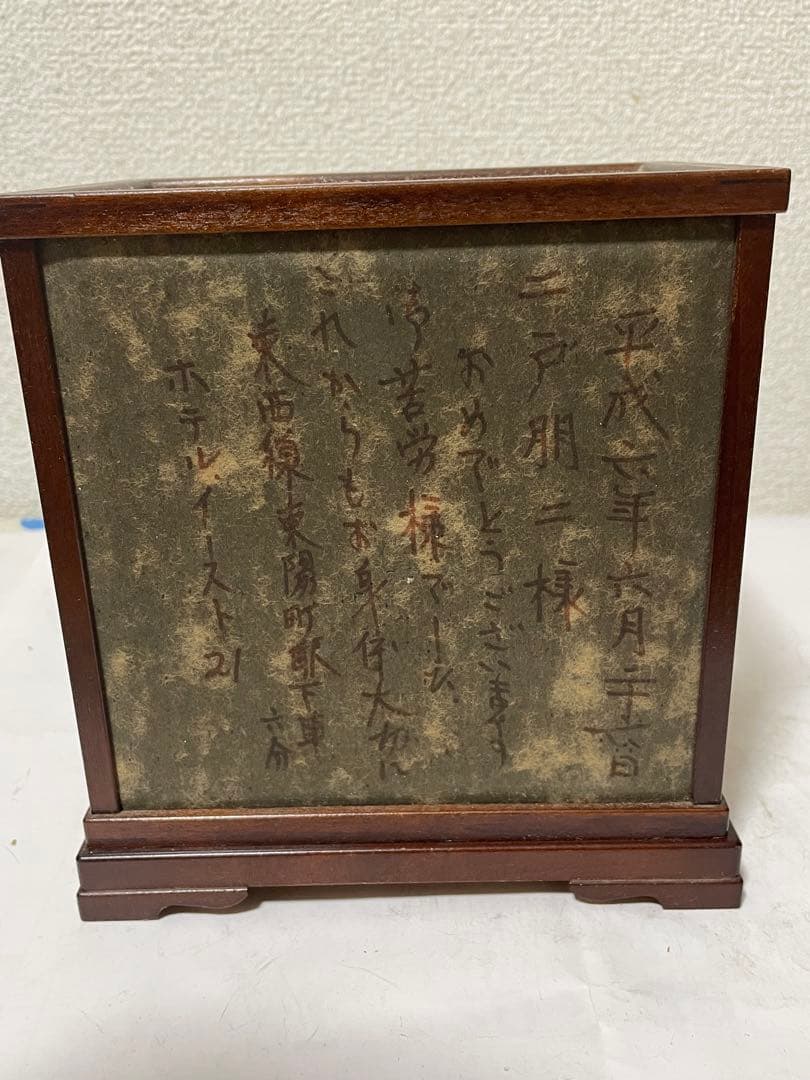 平成六年六月二十六日
二戸朋二様
おめでとうございます
御苦労様でした、
これからもお身体大切に
東西線東陽町駅下車
六分
ホテル、イースト21